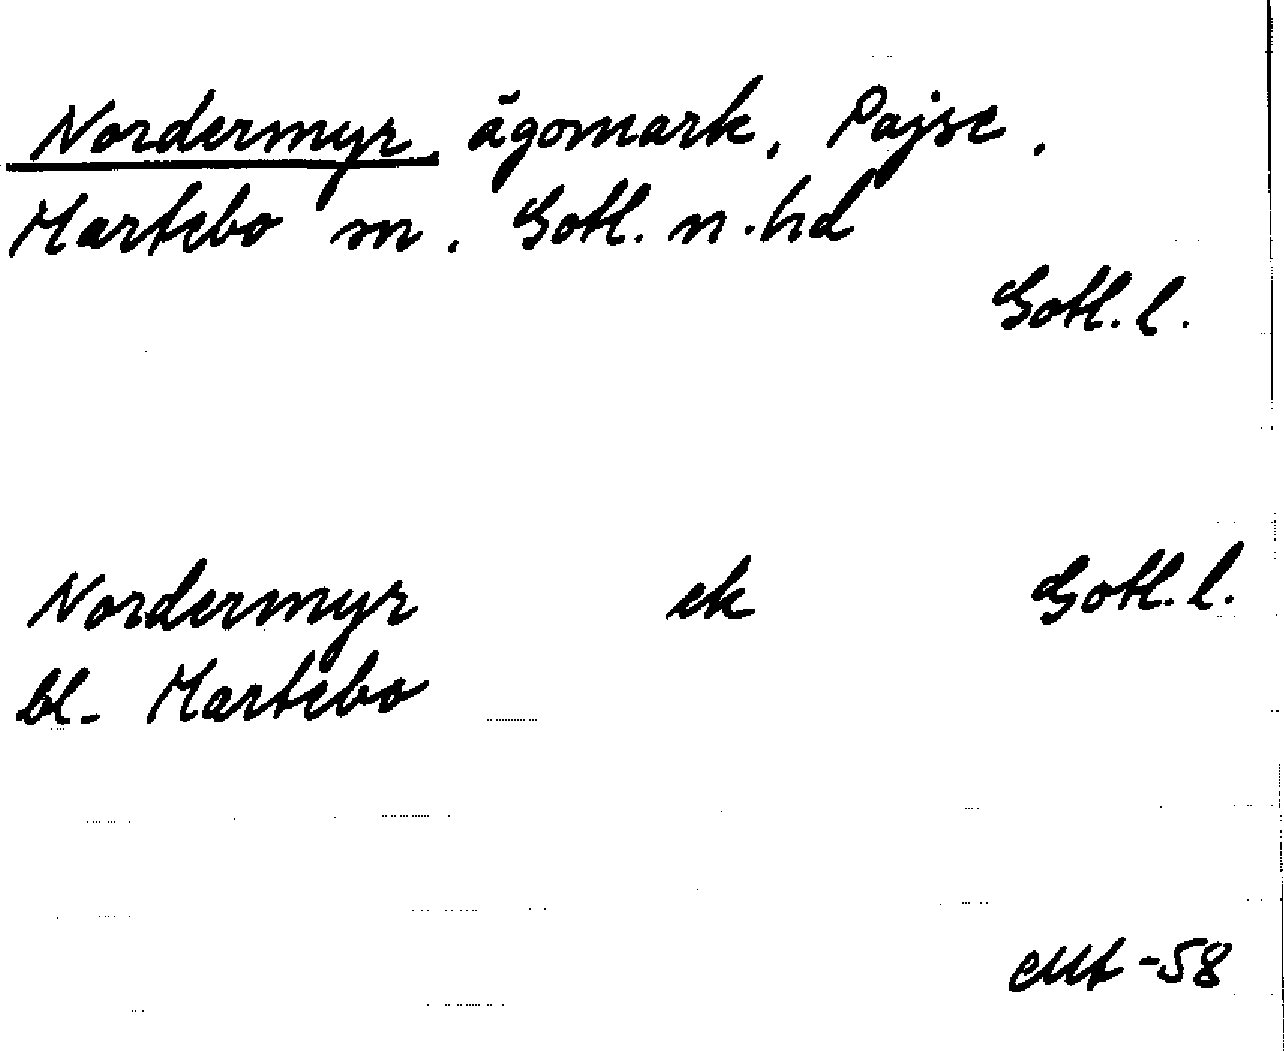 Nordermyr, ägomark, Pajse,
Martebo sn, Gotl. n. hd
Gotl. l.
Nordermyr ek Gotl. l.
bl. Martebo
-58